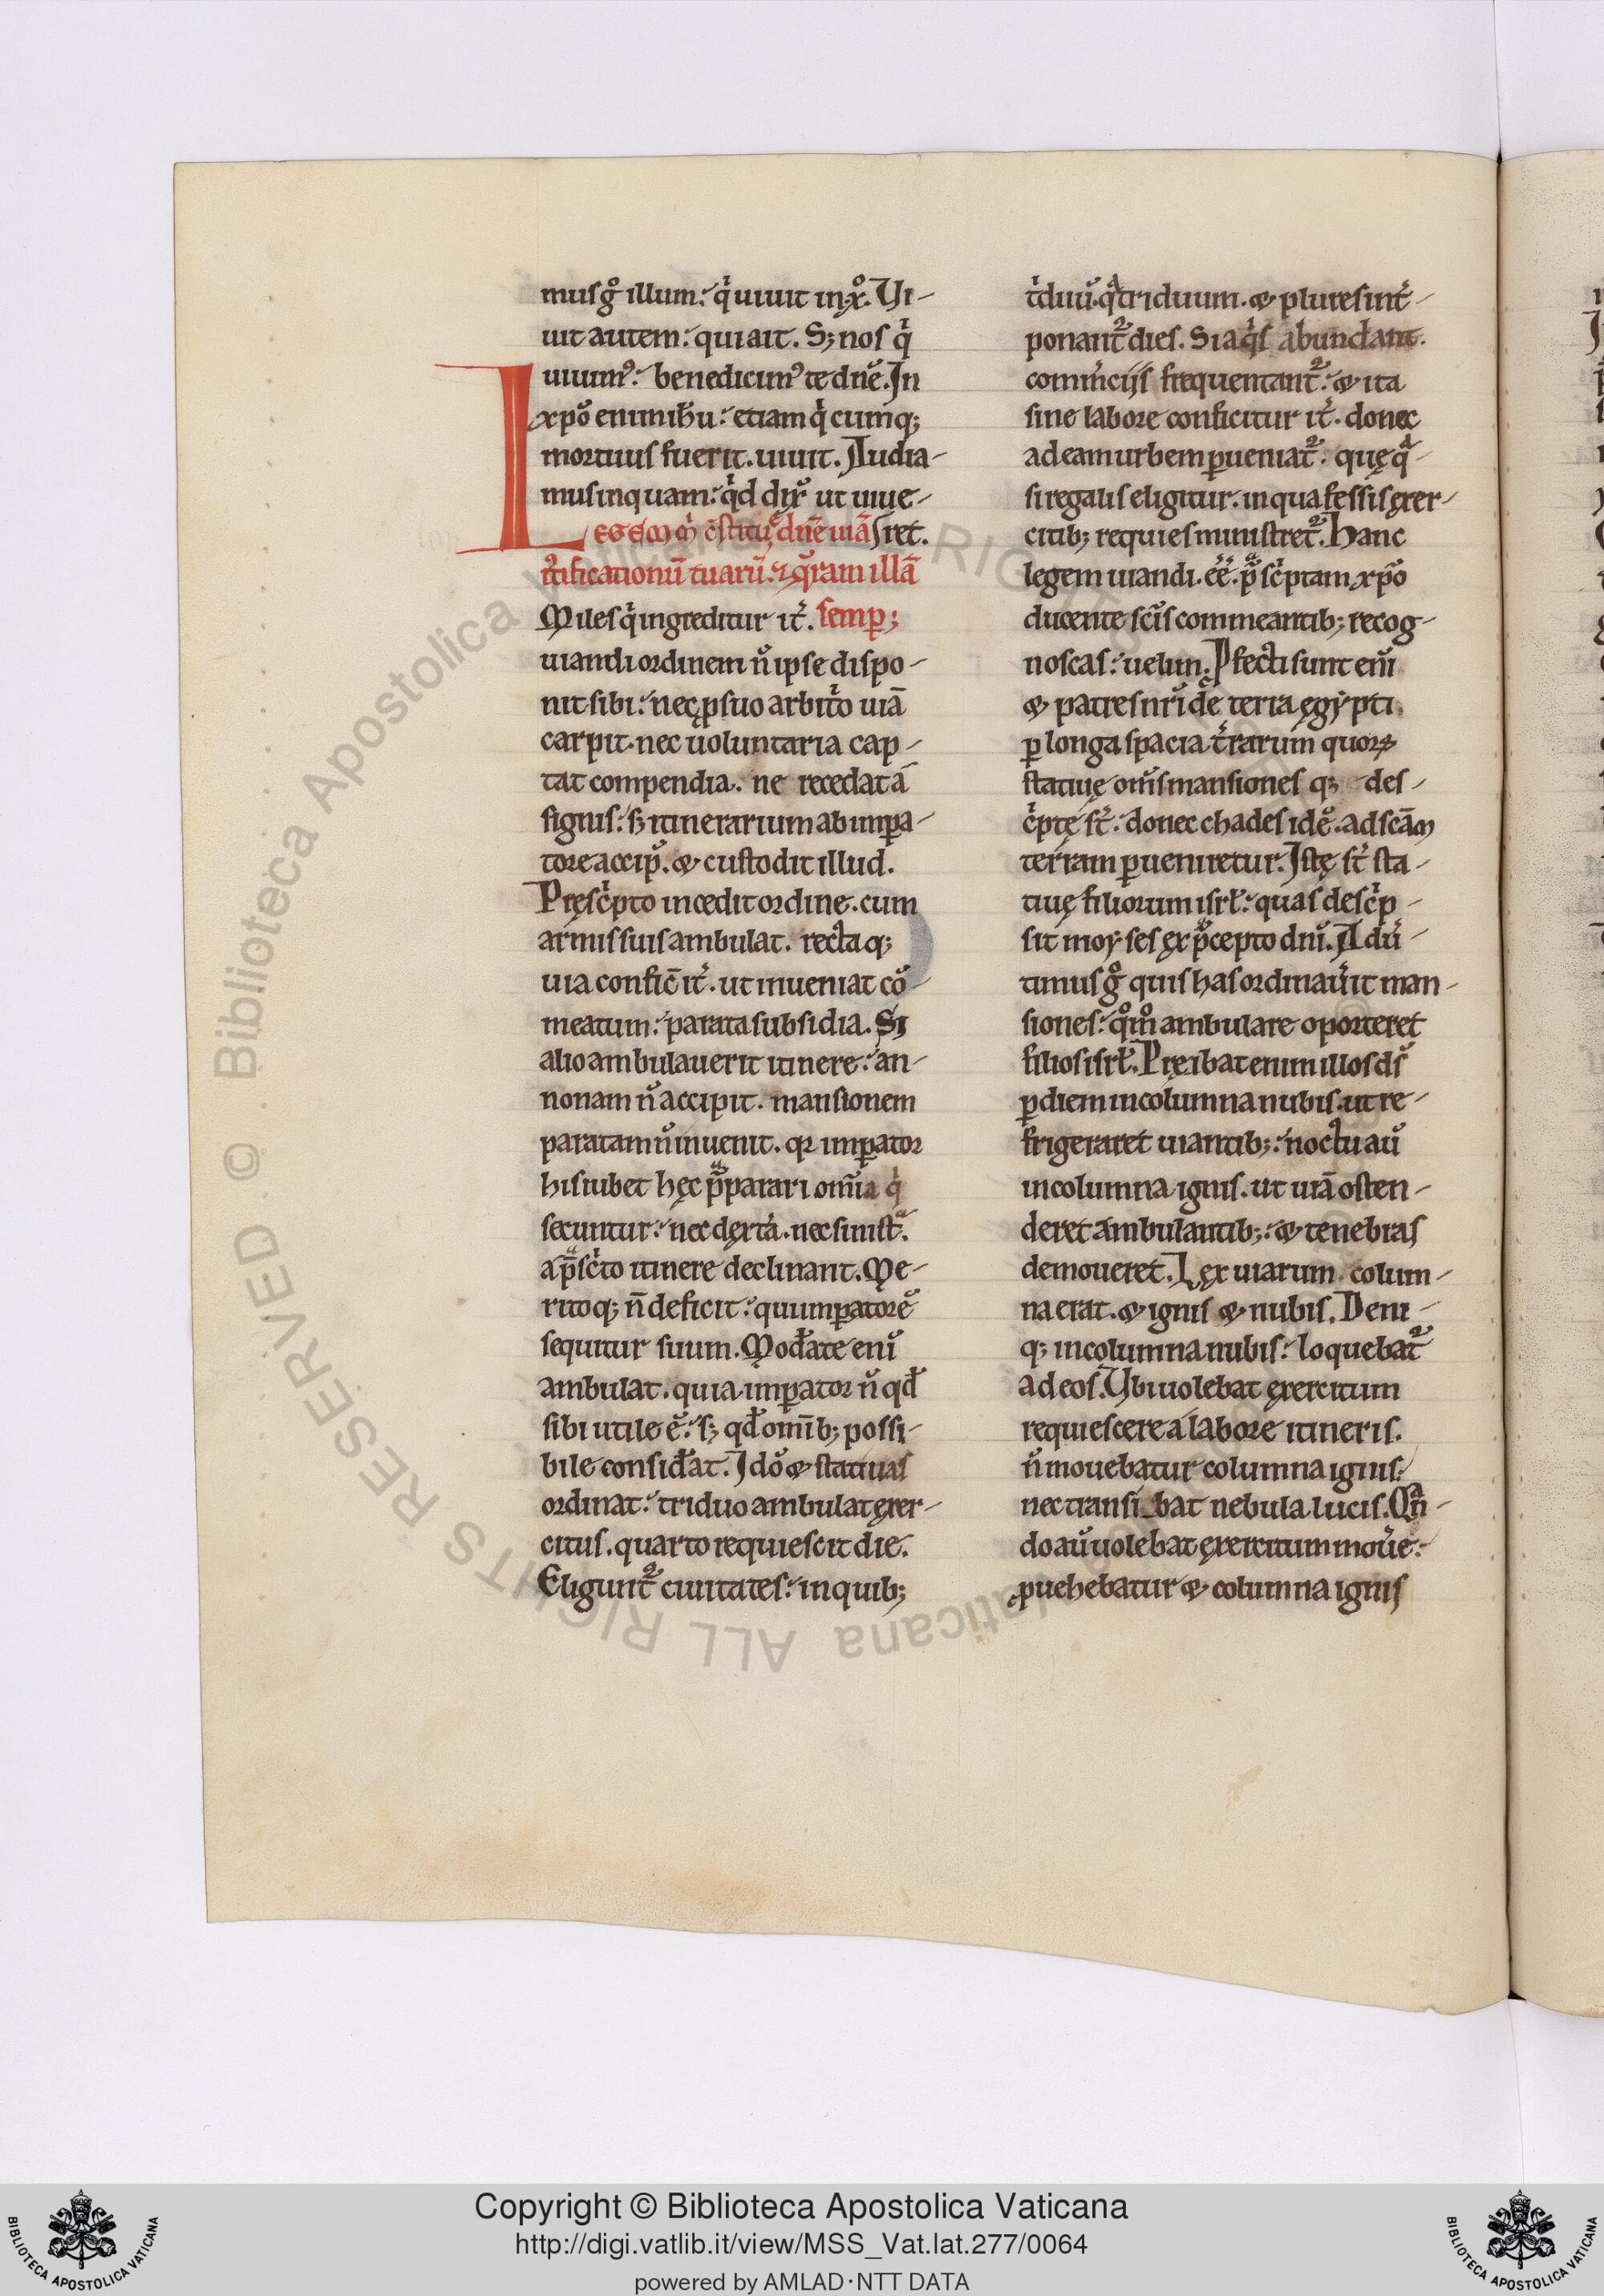 musgͦ illum. qͥ uiuit in xͦ. Vi-
uit autem. quia it. S; nos qͥ
uiuimꝰ. benedicimꝰ te dn̄e. In
xp̄o enim ihū. etiam qͥ cumq;
mortuus fuerit. uiuit. Audia-
mus inquam. qͥd dix̄ ut uiue-
Legem m̊ c̄stitue dn̄e uiā ſret.
iustificationū tuarū. ⁊ exq̄ram illā
Miles qͥ ingreditur it̄. semp;
uiandi ordinem n̄ ipse dispo-
nit sibi. nec ꝓ suo arbitͥo uiā
carpit. nec uoluntaria cap-
tat compendia. ne recedat a
signis. s; itinerarium ab impa-
tore accip̄. & custodit illud.
Pręscͥpto incedit ordine. cum
armis suis ambulat. recta q;
uia confic̄ it̄. ut inueniat cō-
meatum. parata subsidia. Si
alio ambulauerit itinere. an-
nonam n̄ accipit. mansionem
paratam n̄ inuenit. qr imꝑator
his iubet hęc p̄parari om̄ia qͥ
secuntur. nec dextͣa. nec sinistͣ.
a p̄scͥto itinere declinant. Me-
rito q; n̄ deficit. qui imꝑatorē
sequitur suum. Mod̄ate enī
ambulat. quia imꝑator n̄ qd̄
sibi utile ē. s; qd̄ om̄ib; possi-
bile consid̄at. Idō & statiuas
ordinat. triduo ambulat exer-
citus. quarto requiescit die.
Eligunt᷑ ciuitates. in quib;
tͥduū. qͣtriduum. & plures int̄-
ponant᷑ dies. Si aqͥs abundant.
com̄ciis frequentant᷑. & ita
sine labore conficitur it̄. donec
ad eam urbem ꝑueniat᷑. quę qͣ-
si regalis eligitur. in qua fessis exer-
citib; requies ministret᷑. Hanc
legem uiandi. eē. p̄scͥptam xp̄o
ducente scīs commeantib; recog-
noscas. uel un̄. Ꝓfecti sunt enī
& patres nr̄i de terra ęgypti
ꝑ longa spacia t̄rarum quoꝝ
statiuę om̄s mansiones q; des-
cͥptę st̄. donec chades idē. ad scām
terram ꝑueniretur. Istę st̄ sta-
tiuę filiorum isrł. quas descͥp-
sit moyses ex p̄cepto dn̄i. Adū-
timus gͦ quis has ordinau̇it man-
siones. qͦm̊ ambulare oporteret
filios isrł. Pręibat enim illos ds̄
ꝑ diem in columna nubis. ut re-
frigeraret uiantib;. noctu aū
in columna ignis. ut uiā osten-
deret ambulantib;. & tenebras
demoueret. Lex uiarum colum-
na erat. & ignis & nubis. Deni-
q; in columna nubis. loquebat᷑
ad eos. Vbi uolebat exercitum
requiescere a labore itineris.
n̄ mouebatur columna ignis.
nec transi_bat nebula lucis. Qn̄-
do aū uolebat exercitum mou̇e.
ꝓuehebatur & columna ignis
Copyright © Biblioteca Apostolica Vaticana
http://digi.vatlib.it/view/MSS_Vat.lat.277/0064
powered by AMLAD·NTT DATA
BIBLIOTECA APOSTOLICA VATICANA
BIBLIOTECA APOSTOLICA VATICANA
© Biblioteca Apostolica Vaticana ALL RIGHTS RESERVED